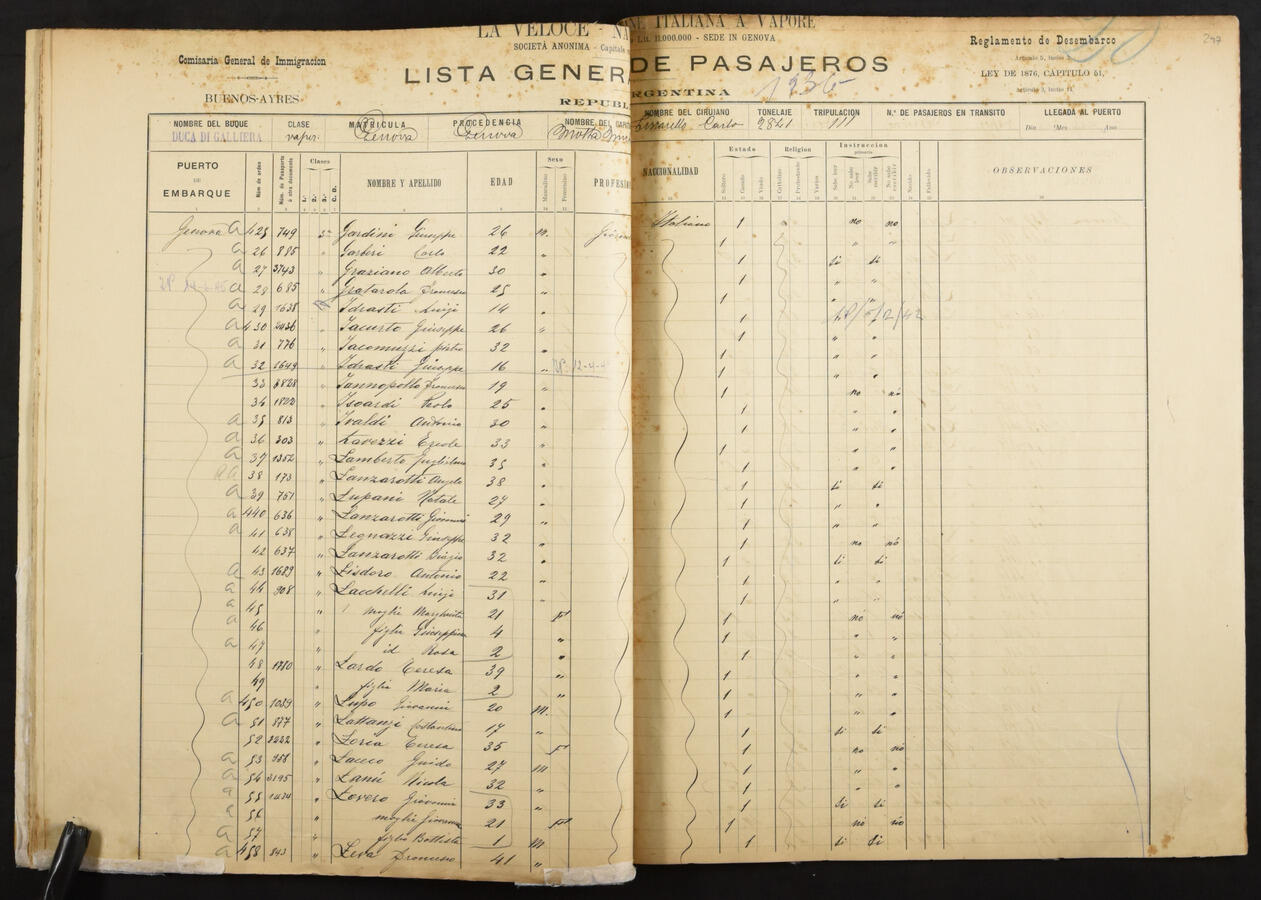 LA VELOCE - NA NE ITALIANA A VAPORE
SOCIETÀ ANONIMA - Capitale Lit. 11.000.000 - SEDE IN GENOVA
Comisaría General de Immigracion
BUENOS-AYRES
LISTA GENERA DE PASAJEROS
REPUBL ARGENTINA
1236
Reglamento de Desembarco
Artículo 5, Inciso
LEY DE 1876, CAPITULO 51,
297
NOMBRE DEL BUQUE CLASE MATRÍCULA PROCEDENCIA NOMBRE DEL CAPIT NOMBRE DEL CIRUJANO TONELAJE TRIPULACION N.° DE PASAJEROS EN TRANSITO LLEGADA AL PUERTO
DUCA DI GALLIERA vapor. Genova Genova Motta Carlo 2821 111 Dia Mes Ano
PUERTO DE EMBARQUE Núm de orden Núm. de Pasaporte ó otro documento Clases 1.ª 2.ª 3.ª C. D. NOMBRE Y APELLIDO EDAD Sexo Masculino Femenino PROFESIO NACCIONALIDAD Estado Soltero Casado Viudo Religion Catholico Protestante Varios Instruccion primaria Sabe leer No sabe leer Sabe escribir No sabe escribir OBSERVACIONES
Genova a 425 749 3ª Gardini Giuseppe 26 m. Italiano 1 no no
a 26 885 " Garbiri Carlo 22 " 1 " "
a 27 3743 " Graziano Alberto 30 " 1 si si
a 28 685 " Gratarola Francesco 25 " 1 " "
a 29 1638 " Idrasti Luigi 14 " 1 " "
a 430 2436 " Iacurto Giuseppe 26 " 1
a 31 776 " Iacomuzzi Pietro 32 " 1 " "
a 32 1649 " Idrasti Giuseppe 16 " 1 " "
33 " Iannopollo Francesco 19 " 1 " "
34 1822 " Isoardi Paolo 25 " 1 no no
a 35 813 " Ivaldi Antonio 30 " 1 " "
a 36 303 " Lavezzi Ercole 33 " 1 " "
a 37 1352 " Lamberto Guglielmo 35 " 1 " "
38 173 " Lanzarotti Angelo 38 " 1 " "
a 39 751 " Lupani Natale 27 " 1 si si
a 440 636 " Lanzarotti Giovanni 29 " 1 " "
a 41 638 " Legnazzi Giuseppe 32 " 1 " "
42 637 " Lanzarotti Biagio 32 " 1 no no
a 43 1689 " Lisdoro Antonio 22 " 1 si si
a 44 908 " Lacchelli Luigi 31 1 " "
a 45 " moglie Margherita 21 F 1 " "
a 46 " figlia Giuseppina 4 " 1 no no
a 47 " id Rosa 2 " 1 " "
48 1780 " Lardo Teresa 39 " 1 " "
49 " figlia Maria 2 " 1 " "
a 450 1039 " Lupo Giovanni 20 m. 1 " "
a 51 877 " Lattanzi Costantino 17 " 1 " "
52 2222 " Loria Teresa 35 F 1 si si
a 53 988 " Lacco Guido 27 m 1 no no
a 54 3195 " Lanú Nicola 32 " 1 " "
a 55 1434 " Lovero Giovanni 33 " 1 " "
a 56 " moglie Giovanna 21 F 1 si si
a 57 " figlio Battista 1 m 1 no no
a 458 843 " Leva Francesco 41 " 1 si si